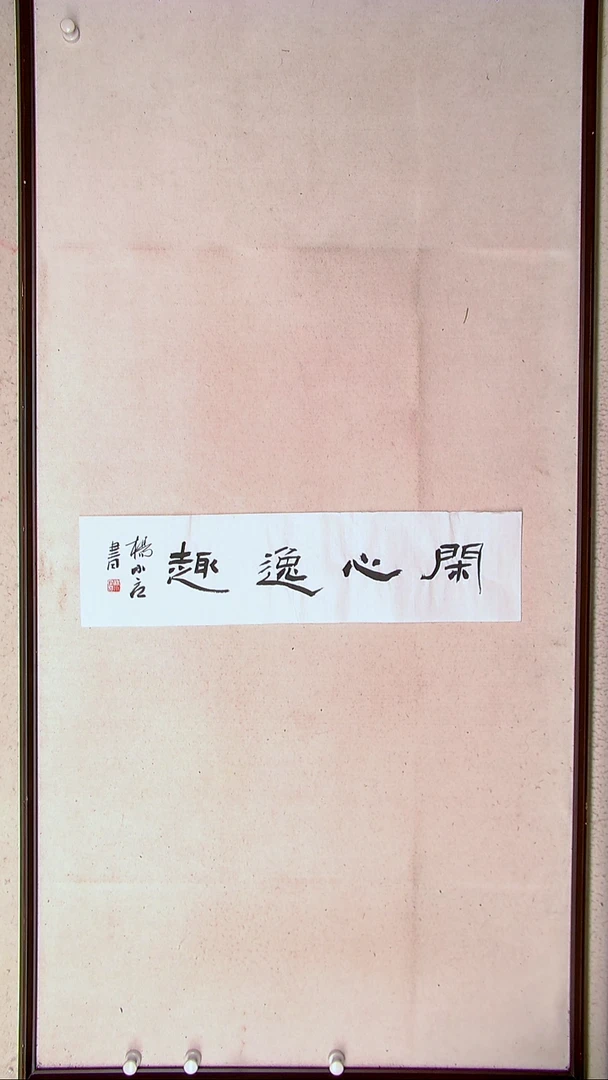 閑心逸趣
楊小
書